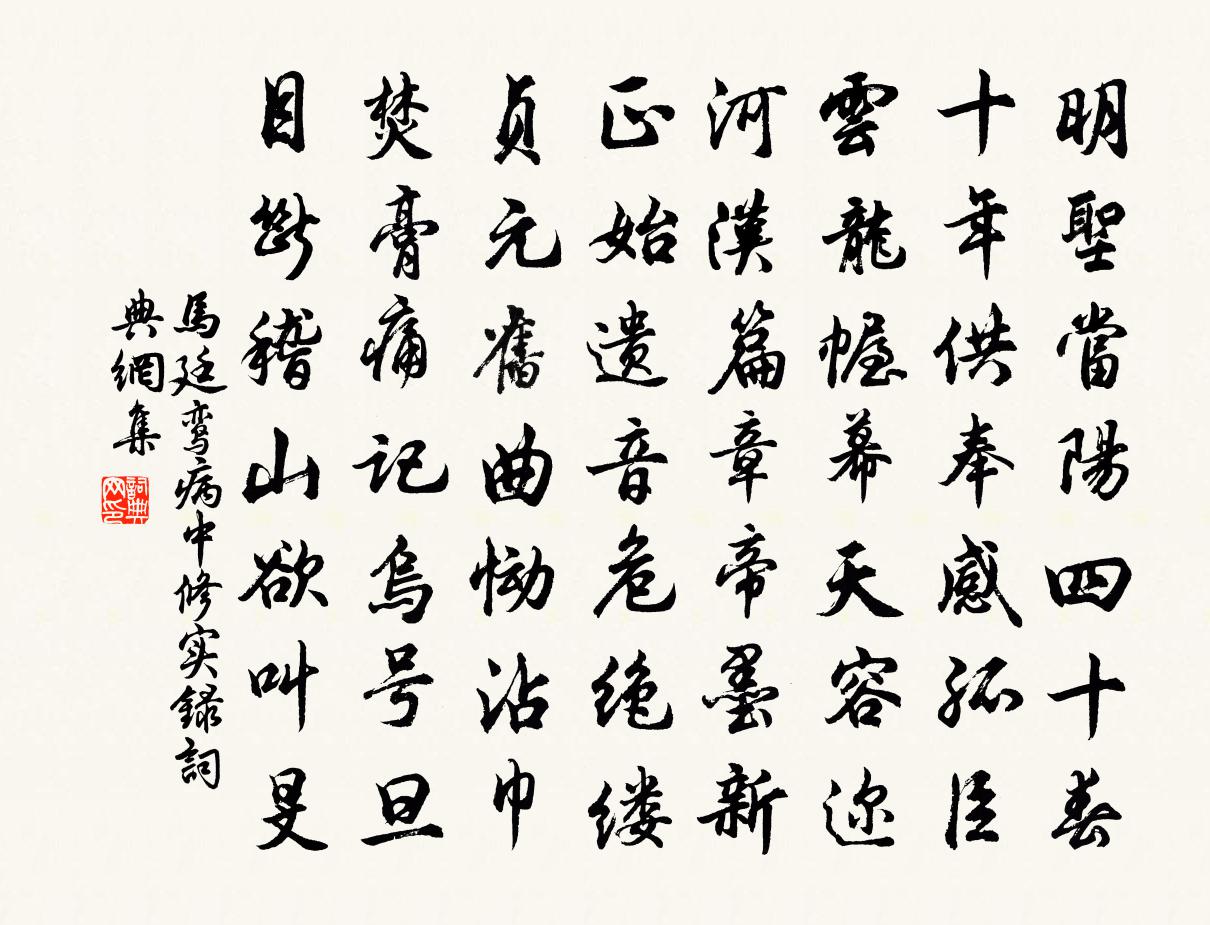 明聖當陽四十春
十年供奉感孤臣
雲龍幄幕天容迩
河漢篇章帝墨新
正始遗音危绝缕
贞元舊曲恸沾巾
焚膏痛记烏号旦
目斷稽山欲叫旻
馬廷鸾病中修实録詞
典網集
詞典网印